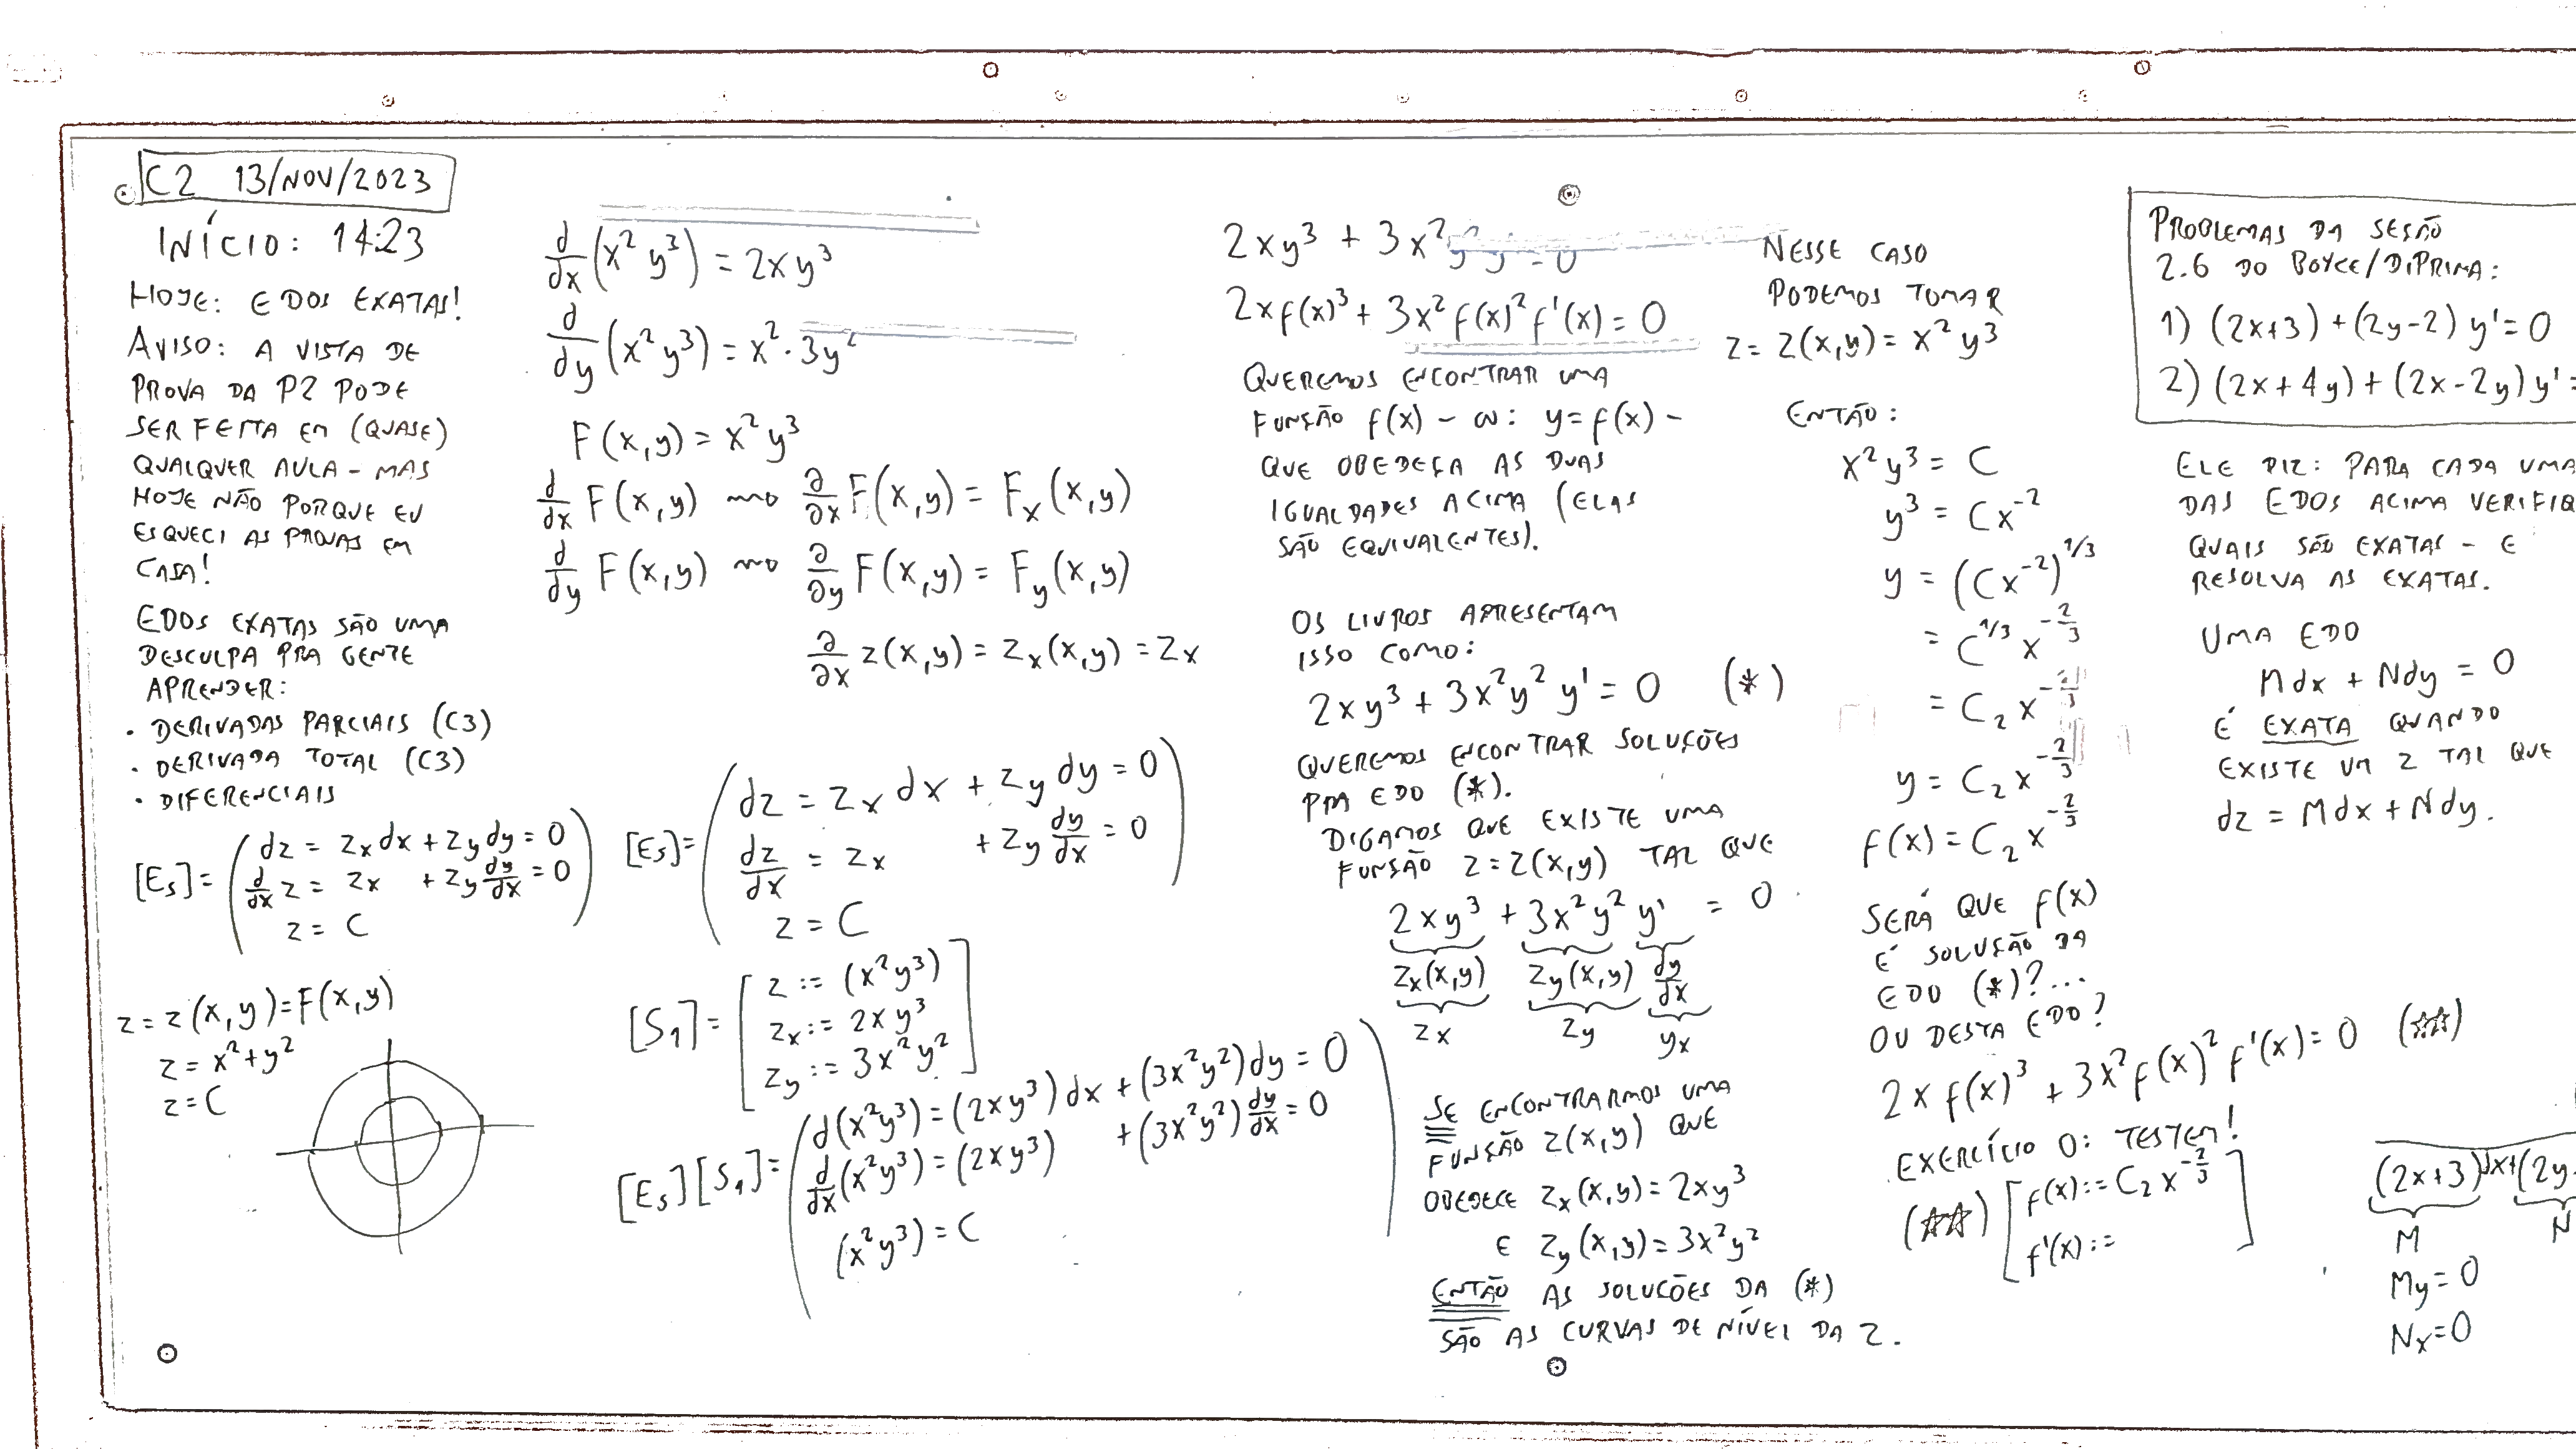 C2 13/NOV/2023
INÍCIO: 14:23
HOJE: EDOS EXATAS!
AVISO: A VISTA DE
PROVA DA P2 PODE
SER FEITA EM (QUASE)
QUALQUER AULA - MAS
HOJE NÃO PORQUE EU
ESQUECI AS PROVAS EM
CASA!
EDOS EXATAS SÃO UMA
DESCULPA PRA GENTE
APRENDER:
• DERIVADAS PARCIAIS (C3)
• DERIVADA TOTAL (C3)
• DIFERENCIAIS
[E₅] = ( dz = z_x dx + z_y dy = 0
d/dx z = z_x + z_y dy/dx = 0
z = C )
z = z(x,y) = F(x,y)
z = x² + y²
z = C
d/dx (x² y³) = 2xy³
d/dy (x² y³) = x² · 3y²
F(x,y) = x² y³
d/dx F(x,y) ⇝ ∂/∂x F(x,y) = F_x(x,y)
d/dy F(x,y) ⇝ ∂/∂y F(x,y) = F_y(x,y)
∂/∂x z(x,y) = z_x(x,y) = z_x
[E₅] = ( dz = z_x dx + z_y dy = 0
dz/dx = z_x + z_y dy/dx = 0
z = C )
[S₁] = [ z := (x²y³)
z_x := 2xy³
z_y := 3x²y² ]
[E₅][S₁] = ( d(x²y³) = (2xy³) dx + (3x²y²) dy = 0
d/dx (x²y³) = (2xy³) + (3x²y²) dy/dx = 0
(x²y³) = C )
2xy³ + 3x² y² y' = 0
2x f(x)³ + 3x² f(x)² f'(x) = 0
QUEREMOS ENCONTRAR UMA
FUNÇÃO f(x) - OU: y = f(x) -
QUE OBEDEÇA AS DUAS
IGUALDADES ACIMA (ELAS
SÃO EQUIVALENTES).
OS LIVROS APRESENTAM
ISSO COMO:
2xy³ + 3x²y² y' = 0 (*)
QUEREMOS ENCONTRAR SOLUÇÕES
PRA EDO (*).
DIGAMOS QUE EXISTE UMA
FUNÇÃO z = z(x,y) TAL QUE
2xy³ + 3x²y² y' = 0
z_x(x,y) z_y(x,y) dy/dx
z_x z_y y_x
SE ENCONTRARMOS UMA
FUNÇÃO z(x,y) QUE
OBEDECE z_x(x,y) = 2xy³
E z_y(x,y) = 3x²y²
ENTÃO AS SOLUÇÕES DA (*)
SÃO AS CURVAS DE NÍVEL DA z.
NESSE CASO
PODEMOS TOMAR
z = z(x,y) = x² y³
ENTÃO:
x² y³ = C
y³ = Cx⁻²
y = (Cx⁻²)^{1/3}
= C^{1/3} x^{-2/3}
= C₂ x^{-2/3}
y = C₂ x^{-2/3}
f(x) = C₂ x^{-2/3}
SERÁ QUE f(x)
É SOLUÇÃO DA
EDO (*)?...
OU DESTA EDO?
2x f(x)³ + 3x² f(x)² f'(x) = 0 (☆☆)
EXERCÍCIO 0: TESTEM!
(☆☆) [ f(x) := C₂ x^{-2/3}
f'(x) := ]
PROBLEMAS DA SEÇÃO
2.6 DO BOYCE/DIPRIMA:
1) (2x+3) + (2y-2) y' = 0
2) (2x + 4y) + (2x - 2y) y' =
ELE DIZ: PARA CADA UMA
DAS EDOS ACIMA VERIFIQ
QUAIS SÃO EXATAS - E
RESOLVA AS EXATAS.
UMA EDO
M dx + N dy = 0
É EXATA QUANDO
EXISTE UM z TAL QUE
dz = M dx + N dy.
(2x+3) dx + (2y-
M N
M_y = 0
N_x = 0